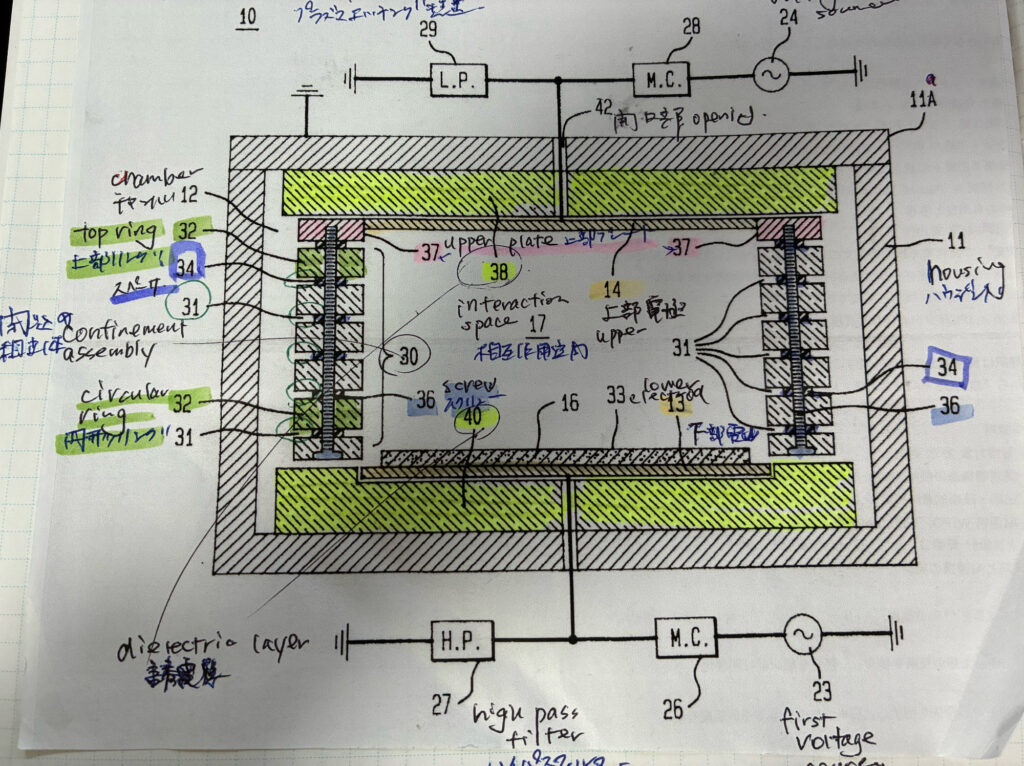 10
プラズマエッチング装置
29
28
24
L.P.
M.C.
11A
42 開口部 opening.
chamber
チャンバ 12
top ring
32
上部リング
34
スペーサ
31
confinement
assembly
circular
ring
32
円形リング
31
37
upper plate
上部プレート
37
38
interaction
space
17
相互作用空間
14
上部電極
upper
30
31
screw
36
スクリュー
40
16
33
lower
electrod
13
下部電極
11
housing
ハウジング
34
36
dielectric layer
誘電層
H.P.
M.C.
27
high pass
filter
26
23
first
voltage